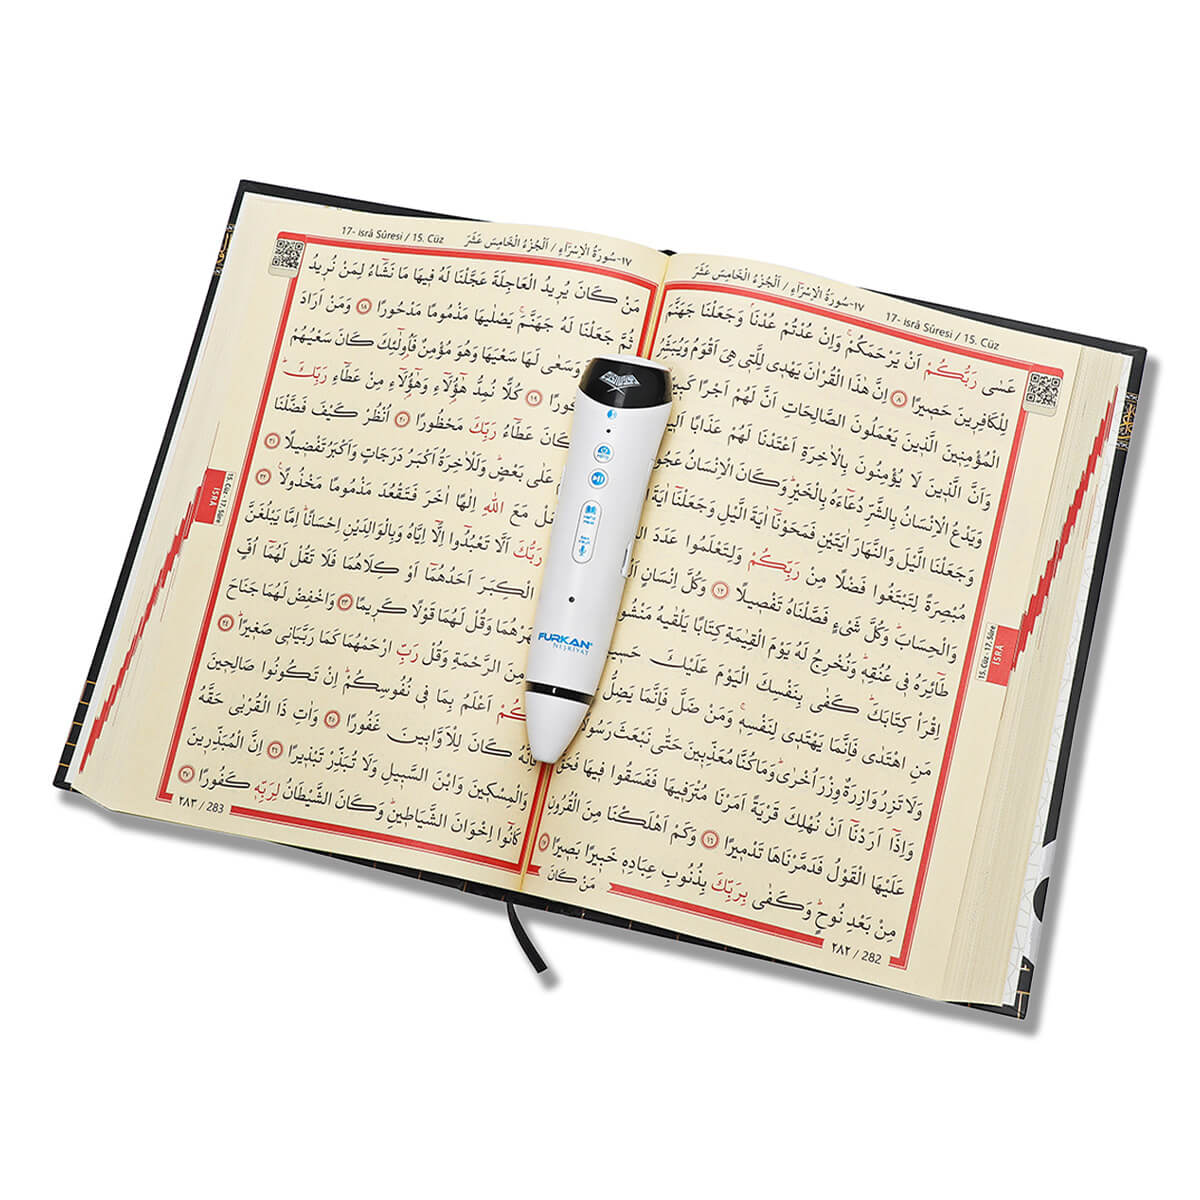 ١٧-سُورَةُ الْاِسْرَاءِ / اَلْجُزْءُ الْخَامِسَ عَشَرَ 17- isrâ Sûresi / 15. Cüz
عَسٰى رَبُّكُمْ اَنْ يَرْحَمَكُمْۚ وَاِنْ عُدْتُمْ عُدْنَاۢ وَجَعَلْنَا جَهَنَّمَ
لِلْكَافِرٖينَ حَصٖيرًا ٨ اِنَّ هٰذَا الْقُرْاٰنَ يَهْدٖى لِلَّتٖى هِىَ اَقْوَمُ وَيُبَشِّرُ
الْمُؤْمِنٖينَ الَّذٖينَ يَعْمَلُونَ الصَّالِحَاتِ اَنَّ لَهُمْ اَجْرًا
وَاَنَّ الَّذٖينَ لَا يُؤْمِنُونَ بِالْاٰخِرَةِ اَعْتَدْنَا لَهُمْ عَذَابًا
وَيَدْعُ الْاِنْسَانُ بِالشَّرِّ دُعَاءَهُ بِالْخَيْرِؕ وَكَانَ الْاِنْسَانُ
وَجَعَلْنَا الَّيْلَ وَالنَّهَارَ اٰيَتَيْنِ فَمَحَوْنَٓا اٰيَةَ الَّيْلِ وَجَعَلْنَٓا اٰيَةَ
مُبْصِرَةً لِتَبْتَغُوا فَضْلًا مِنْ رَبِّكُمْ وَلِتَعْلَمُوا عَدَدَ
وَالْحِسَابَؕ وَكُلَّ شَىْءٍ فَصَّلْنَاهُ تَفْصٖيلًا ١٢ وَكُلَّ اِنْسَانٍ
طَٓائِرَهُ فٖى عُنُقِهٖؕ وَنُخْرِجُ لَهُ يَوْمَ الْقِيٰمَةِ كِتَابًا يَلْقٰيهُ
اِقْرَأْ كِتَابَكَؕ كَفٰى بِنَفْسِكَ الْيَوْمَ عَلَيْكَ
مَنِ اهْتَدٰى فَاِنَّمَا يَهْتَدٖى لِنَفْسِهٖۚ وَمَنْ ضَلَّ فَاِنَّمَا يَضِلُّ
وَلَا تَزِرُ وَازِرَةٌ وِزْرَ اُخْرٰىؕ وَمَا كُنَّا مُعَذِّبٖينَ حَتّٰى نَبْعَثَ
وَاِذَٓا اَرَدْنَٓا اَنْ نُهْلِكَ قَرْيَةً اَمَرْنَا مُتْرَفٖيهَا فَفَسَقُوا فٖيهَا
عَلَيْهَا الْقَوْلُ فَدَمَّرْنَاهَا تَدْمٖيرًا ١٦ وَكَمْ اَهْلَكْنَا مِنَ الْقُرُونِ
مِنْ بَعْدِ نُوحٍؕ وَكَفٰى بِرَبِّكَ بِذُنُوبِ عِبَادِهٖ خَبٖيرًا بَصٖيرًا ١٧
مَنْ كَانَ
٢٨٢ / 282
15. Cüz - 17. Sûre
İSRÂ
17- isrâ Sûresi / 15. Cüz ١٧-سُورَةُ الْاِسْرَاءِ / اَلْجُزْءُ الْخَامِسَ عَشَرَ
مَنْ كَانَ يُرٖيدُ الْعَاجِلَةَ عَجَّلْنَا لَهُ فٖيهَا مَا نَشَٓاءُ لِمَنْ نُرٖيدُ
ثُمَّ جَعَلْنَا لَهُ جَهَنَّمَۚ يَصْلٰيهَا مَذْمُومًا مَدْحُورًا ١٨ وَمَنْ اَرَادَ
وَسَعٰى لَهَا سَعْيَهَا وَهُوَ مُؤْمِنٌ فَاُولٰٓئِكَ كَانَ سَعْيُهُمْ
١٩ كُلًّا نُمِدُّ هٰٓؤُلَٓاءِ وَهٰٓؤُلَٓاءِ مِنْ عَطَٓاءِ رَبِّكَؕ
كَانَ عَطَٓاءُ رَبِّكَ مَحْظُورًا ٢٠ اُنْظُرْ كَيْفَ فَضَّلْنَا
عَلٰى بَعْضٍؕ وَلَلْاٰخِرَةُ اَكْبَرُ دَرَجَاتٍ وَاَكْبَرُ تَفْضٖيلًا ٢١
مَعَ اللّٰهِ اِلٰهًا اٰخَرَ فَتَقْعُدَ مَذْمُومًا مَخْذُولًا ٢٢
رَبُّكَ اَلَّا تَعْبُدُٓوا اِلَّٓا اِيَّاهُ وَبِالْوَالِدَيْنِ اِحْسَانًاؕ اِمَّا يَبْلُغَنَّ
الْكِبَرَ اَحَدُهُمَٓا اَوْ كِلَاهُمَا فَلَا تَقُلْ لَهُمَٓا اُفٍّ
وَقُلْ لَهُمَا قَوْلًا كَرٖيمًا ٢٣ وَاخْفِضْ لَهُمَا جَنَاحَ
مِنَ الرَّحْمَةِ وَقُلْ رَبِّ ارْحَمْهُمَا كَمَا رَبَّيَانٖى صَغٖيرًا ٢٤
اَعْلَمُ بِمَا فٖى نُفُوسِكُمْؕ اِنْ تَكُونُوا صَالِحٖينَ
كَانَ لِلْاَوَّابٖينَ غَفُورًا ٢٥ وَاٰتِ ذَا الْقُرْبٰى حَقَّهُ
وَالْمِسْكٖينَ وَابْنَ السَّبٖيلِ وَلَا تُبَذِّرْ تَبْذٖيرًا ٢٦ اِنَّ الْمُبَذِّرٖينَ
كَانُٓوا اِخْوَانَ الشَّيَاطٖينِؕ وَكَانَ الشَّيْطَانُ لِرَبِّهٖ كَفُورًا ٢٧
٢٨٣ / 283
15. Cüz - 17. Sûre
İSRÂ
FURKAN
NEŞRİYAT